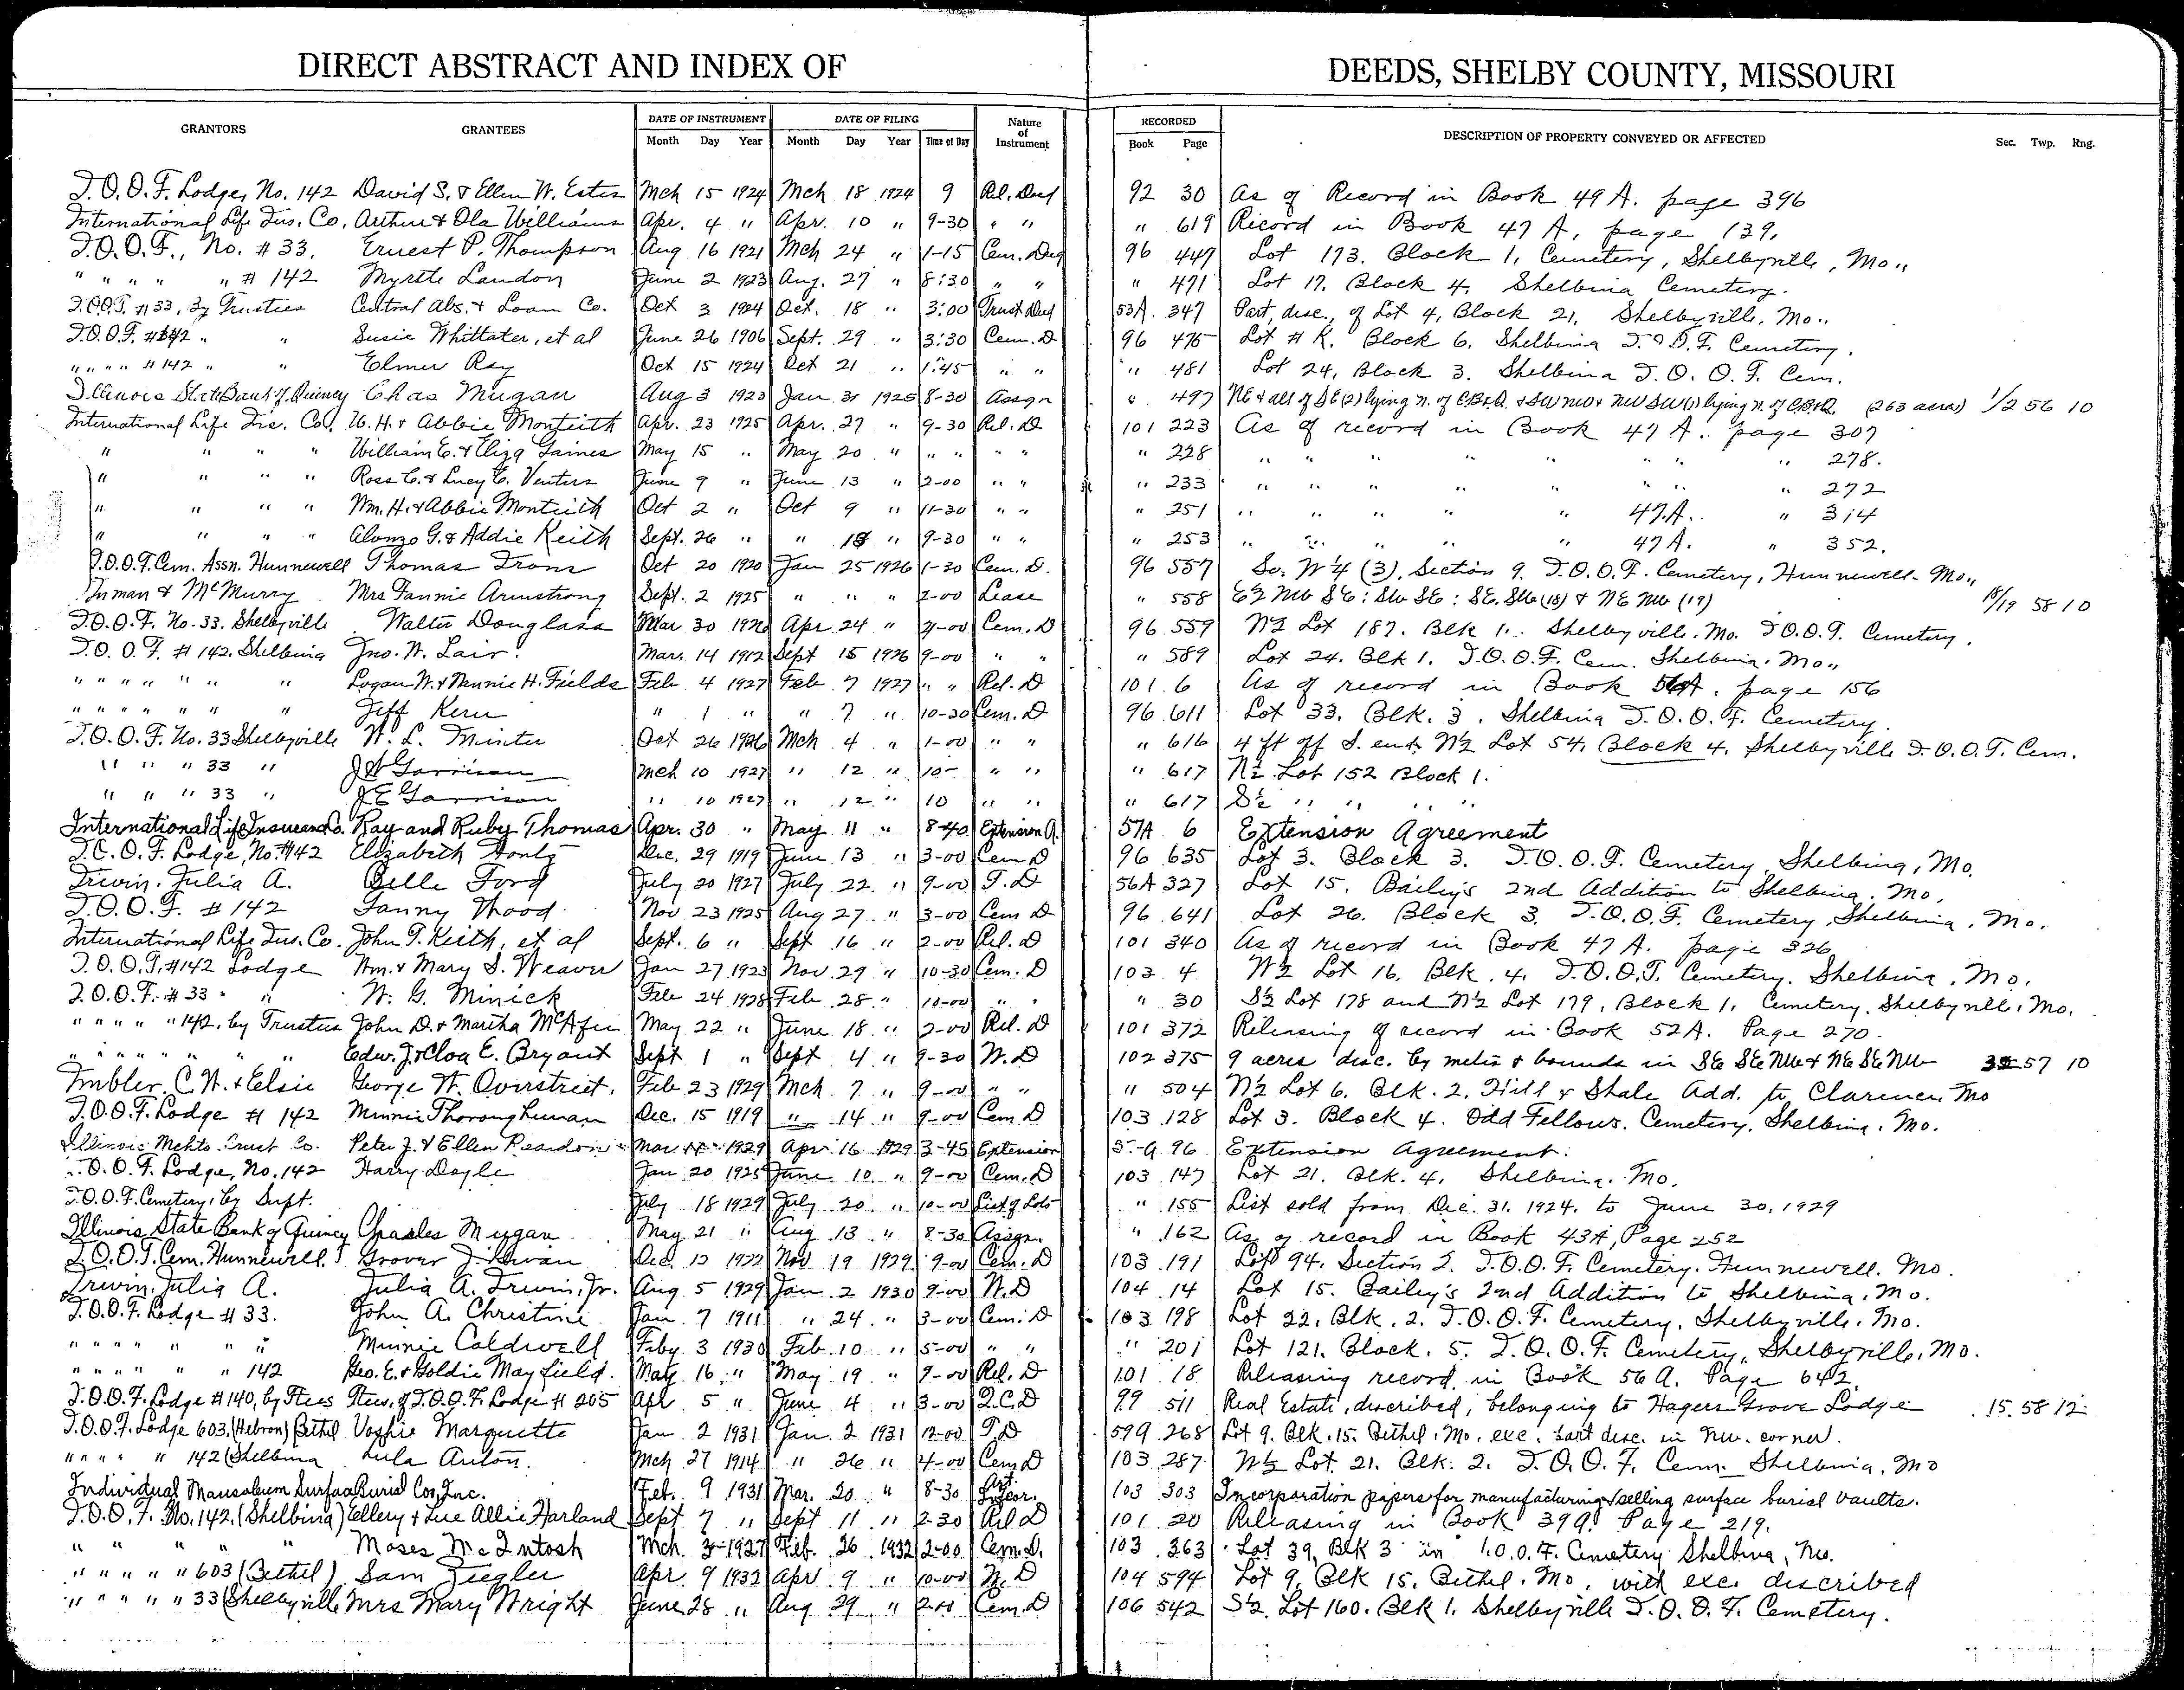 DIRECT ABSTRACT AND INDEX OF DEEDS, SHELBY COUNTY, MISSOURI
GRANTORS GRANTEES DATE OF INSTRUMENT DATE OF FILING Nature of Instrument RECORDED DESCRIPTION OF PROPERTY CONVEYED OR AFFECTED Sec. Twp. Rng.
Month Day Year Month Day Year Time of Day Book Page
I.O.O.F. Lodge, No. 142 David S. & Ellen W. Estes Mch 15 1924 Mch 18 1924 9 Rel. Deed 92 30 As of Record in Book 49 A. page 396
International Life Ins. Co. Arthur & Ola Williams Apr. 4 " Apr. 10 " 9-30 " " " 619 Record in Book 47 A, page 139.
I.O.O.F., No. # 33. Ernest P. Thompson Aug 16 1921 Mch 24 " 1-15 Cem. Deed 96 447 Lot 173. Block 1, Cemetery, Shelbyville, Mo..
" " " " " # 142 Myrtle Landon June 2 1923 Aug. 27 " 8:30 " " " 471 Lot 17. Block 4. Shelbina Cemetery.
I.O.O.F. #33, By Trustees Central Abs. & Loan Co. Oct 3 1924 Oct. 18 " 3:00 Trust Deed 53A. 347 Part, desc., of Lot 4, Block 21, Shelbyville, Mo..
I.O.O.F. #142 " " Susie Whittaker, et al June 26 1906 Sept. 29 " 3:30 Cem. D 96 475 Lot # K. Block 6. Shelbina I.O.O.F. Cemetery.
" " " " # 142 " " Elmer Ray Oct 15 1924 Oct 21 " 1:45 " " " 481 Lot 24, Block 3. Shelbina I.O.O.F. Cem.
Illinois State Bank of Quincy Chas Mugan Aug 3 1923 Jan 31 1925 8-30 Assgn " 497 NE & all of SE(2) lying n. of C.B.&Q. & SW NW & NW SW(1) lying n. of C.B.&Q. (263 acres) 1/2 56 10
International Life Ins. Co. W. H. & Abbie Monteith Apr. 23 1925 Apr. 27 " 9-30 Rel. D 101 223 As of record in Book 47 A. page 307
" " " " William E. & Eliza Gaines May 15 " May 20 " " " " " " 228 " " " " " " " " 278.
" " " " Ross C. & Lucy E. Venters June 9 " June 13 " 2-00 " " " 233 " " " " " " " " 272
" " " " Wm. H. & Abbie Monteith Oct 2 " Oct 9 " 11-30 " " " 251 " " " " " 47.A.. " 314
" " " " Alonzo G. & Addie Keith Sept. 26 " " 15 " 9-30 " " " 253 " " " " " 47 A. " 352.
I.O.O.F. Cem. Assn. Hunnewell Thomas Irons Oct 20 1920 Jan 25 1926 1-30 Cem. D. 96 557 So. W 4 (3), Section 9. I.O.O.F. Cemetery, Hunnewell. Mo..
Inman & McMurry Mrs Fannie Armstrong Sept. 2 1925 " " " 2-00 Lease " 558 E2 NW SE: SW SE: SE. SW (18) & NE NW (19) 18/19 58 10
I.O.O.F. No. 33. Shelbyville Walter Douglass Mar 30 1926 Apr 24 " 4-00 Cem. D 96 559 N½ Lot 187. Blk 1. Shelbyville. Mo. I.O.O.F. Cemetery.
I.O.O.F. # 142. Shelbina Jno. W. Lair. Mar. 14 1912 Sept 15 1926 9-00 " " " 589 Lot 24. Blk 1. I.O.O.F. Cem. Shelbina. Mo..
" " " " " " " Logan W. & Nannie H. Fields Feb 4 1927 Feb 7 1927 " " Rel. D 101. 6 As of record in Book 56A. page 156
" " " " " " " Jeff Kern " 1 " " 7 " 10-30 Cem. D 96 611 Lot 33. Blk. 3. Shelbina I.O.O.F. Cemetery.
I.O.O.F. No. 33 Shelbyville W. L. Minter Oct 26 1926 Mch 4 " 1-00 " " " 616 4 ft off S. end N½ Lot 54, Block 4. Shelbyville I.O.O.F. Cem.
" " " 33 " J W Garrison Mch 10 1927 " 12 " 10- " " " 617 N½ Lot 152 Block 1.
" " " 33 " J E Garrison " 10 1927 " 12 " 10 " " " 617 S½ " " " "
International Life Insurance Co. Ray and Ruby Thomas Apr. 30 " May 11 " 8-40 Extension A. 57A 6 Extension Agreement
I.O.O.F. Lodge, No. #142 Elizabeth Dec. 29 1919 June 13 " 3-00 Cem D 96 635 Lot 3. Block 3. I.O.O.F. Cemetery Shelbina, Mo.
Irwin. Julia A. Belle Ford July 20 1927 July 22 " 9-00 T. D 56A 327 Lot 15. Bailey's 2nd Addition to Shelbina. Mo.
I.O.O.F. # 142 Fanny Wood Nov 23 1925 Aug 27 " 3-00 Cem D 96 641 Lot 26. Block 3. I.O.O.F. Cemetery, Shelbina, Mo.
International Life Ins. Co. John T. Keith, et al Sept. 6 " Sept 16 " 2-00 Rel. D 101 340 As of record in Book 47 A. page 326
I.O.O.F. #142 Lodge Wm. & Mary S. Weaver Jan 27 1923 Nov 29 " 10-30 Cem. D 103 4 W½ Lot 16. Blk. 4. I.O.O.F. Cemetery. Shelbina, Mo.
I.O.O.F. # 33 " W. G. Minick Feb 24 1928 Feb 28 " 10-00 " " " 30 S½ Lot 178 and N½ Lot 179, Block 1, Cemetery. Shelbyville, Mo.
" " " " " 142. by Trustees John D. & Martha McAfee May 22 " June 18 " 2-00 Rel. D 101 372 Releasing of record in Book 52A. Page 270.
" " " " " " " Edw. J. & Cloa E. Bryant Sept 1 " Sept 4 " 9-30 W. D 102 375 9 acres desc. by metes & bounds in SE SE NW & NE SE NW 57 10
Imbler, C. W. & Elsie George W. Overstreet. Feb 23 1929 Mch 7 " 9-00 " " " 504 N½ Lot 6. Blk. 2. Hill & Shale Add. to Clarence Mo
I.O.O.F. Lodge # 142 Minnie Thoroughman Dec. 15 1919 " 14 " 9-00 Cem. D 103 128 Lot 3. Block 4. Odd Fellows. Cemetery. Shelbina. Mo.
Illinois Mchts. Trust Co. Peter J. & Ellen Reardon Mar 1929 Apr 16 1929 3-45 Extension 96 Extension Agreement.
I.O.O.F. Lodge, No. 142 Harry Doyle Jan 20 1925 June 10 " 9-00 Cem. D 103 147 Lot 21. Blk. 4. Shelbina. Mo.
I.O.O.F. Cemetery, by Supt. July 18 1929 July 20 " 10-00 List of Lots " 155 List sold from Dec. 31. 1924. to June 30, 1929
Illinois State Bank of Quincy Charles Mugan May 21 " Aug 13 " 8-30 Assgn. " 162 As of record in Book 43A, Page 252
I.O.O.F. Cem. Hunnewell. Grover Dec. 12 1922 Nov 19 1929 9-00 Cem. D 103 191 Lot 94. Section 2. I.O.O.F. Cemetery. Hunnewell. Mo.
Irwin, Julia A. Julia A. Irwin, Jr. Aug. 5 1929 Jan. 2 1930 9-00 W. D 104 14 Lot 15. Bailey's 2nd Addition to Shelbina, Mo.
I.O.O.F. Lodge # 33. John A. Christine Jan. 7 1911 " 24 " 3-00 Cem. D 103 198 Lot 22. Blk. 2. I.O.O.F. Cemetery. Shelbyville. Mo.
" " " " " " " Minnie Caldwell Feby 3 1930 Feb. 10 " 5-00 " " " 201 Lot 121. Block. 5. I.O.O.F. Cemetery, Shelbyville, Mo.
" " " " " " 142 Geo. E. & Goldie Mayfield. May 16 " May 19 " 9-00 Rel. D 101 18 Releasing record in Book 56 A. Page 642.
I.O.O.F. Lodge #140, by Stees Stees. of I.O.O.F. Lodge # 205 Apr 5 " June 4 " 3-00 Q.C.D 99 511 Real Estate, described, belonging to Hagers Grove Lodge 15. 58 12
I.O.O.F. Lodge 603. (Hebron) Bethel Vophie Marquette Jan 2 1931 Jan. 2 1931 12-00 T. D 59A 268 Lot 9. Blk. 15. Bethel. Mo. exc. part desc. in NW. corner.
" " " " " 142 (Shelbina Lula Anton. Mch 27 1914 " 26 " 4-00 Cem D 103 287 W½ Lot. 21. Blk. 2. I.O.O.F. Cem. Shelbina, Mo
Individual Mausoleum Surface Burial Co., Inc. Feb. 9 1931 Mar. 20 " 8-30 Art. Incor. 103 303 Incorporation papers for manufacturing & selling surface burial vaults.
I.O.O.F. No. 142. (Shelbina) Ellery & Sue Allie Harland Sept 7 " Sept 11 " 2-30 Rel D 101 20 Releasing in Book 39A. Page 219.
" " " " " Moses McIntosh Mch. 3 1927 Feb. 26 1932 2-00 Cem. D. 103 363 Lot 39, Blk 3 in I.O.O.F. Cemetery Shelbina, Mo.
" " " " " 603 (Bethel) Sam Ziegler Apr. 9 1932 Apr 9 " 10-00 W. D 104 594 Lot 9, Blk 15. Bethel. Mo. with exc. discribed
" " " " " 33 (Shelbyville Mrs Mary Wright June 28 " Aug 29 " 2-00 Cem. D 106 542 S½ Lot 160. Blk 1. Shelbyville I.O.O.F. Cemetery.